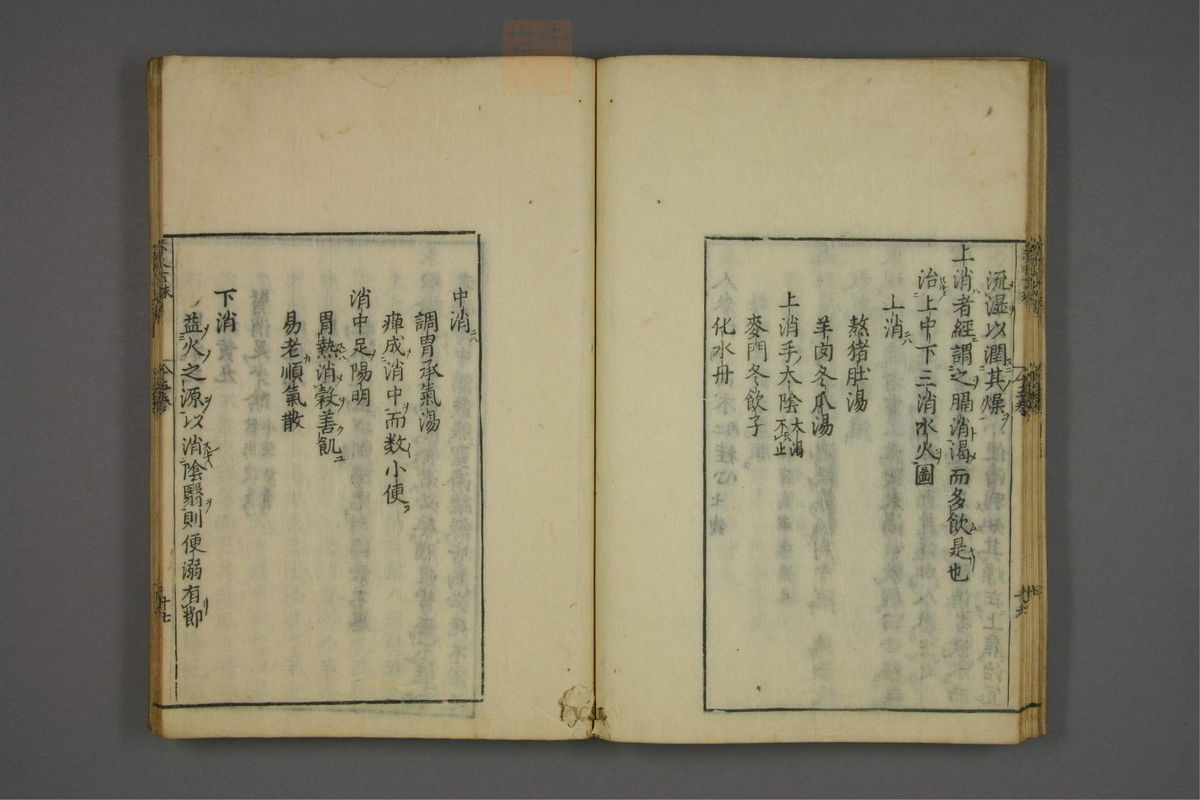 流湿以潤其燥
上消者經謂之膈消渴而多飲是也
治上中下三消水火圖
上消
熬猪肚湯
羊肉冬瓜湯
上消手太陰大渴不止
麥門冬飲子
化水丹
中消
調胃承氣湯
癉成消中而数小便
消中足陽明
胃熱消穀善飢
易老順氣散
下消
益火之源以消陰翳則便溺有節
十七